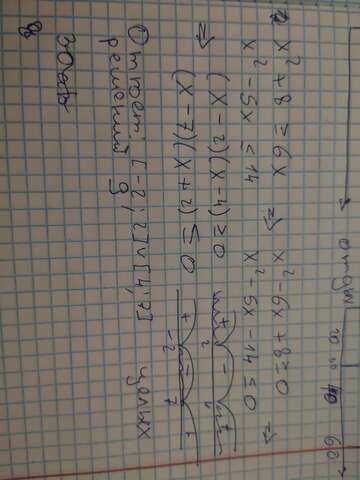 x² + 8 ≥ 6x ⇔ x² - 6x + 8 ≥ 0
x² - 5x ≤ 14 x² - 5x - 14 ≤ 0 ⇔
⇔ (x - 2)(x - 4) ≥ 0 + 2 - 4 +
(x - 7)(x + 2) ≤ 0 + -2 - 7 +
Ответ: [-2; 2] ∪ [4; 7] целых
решений 9